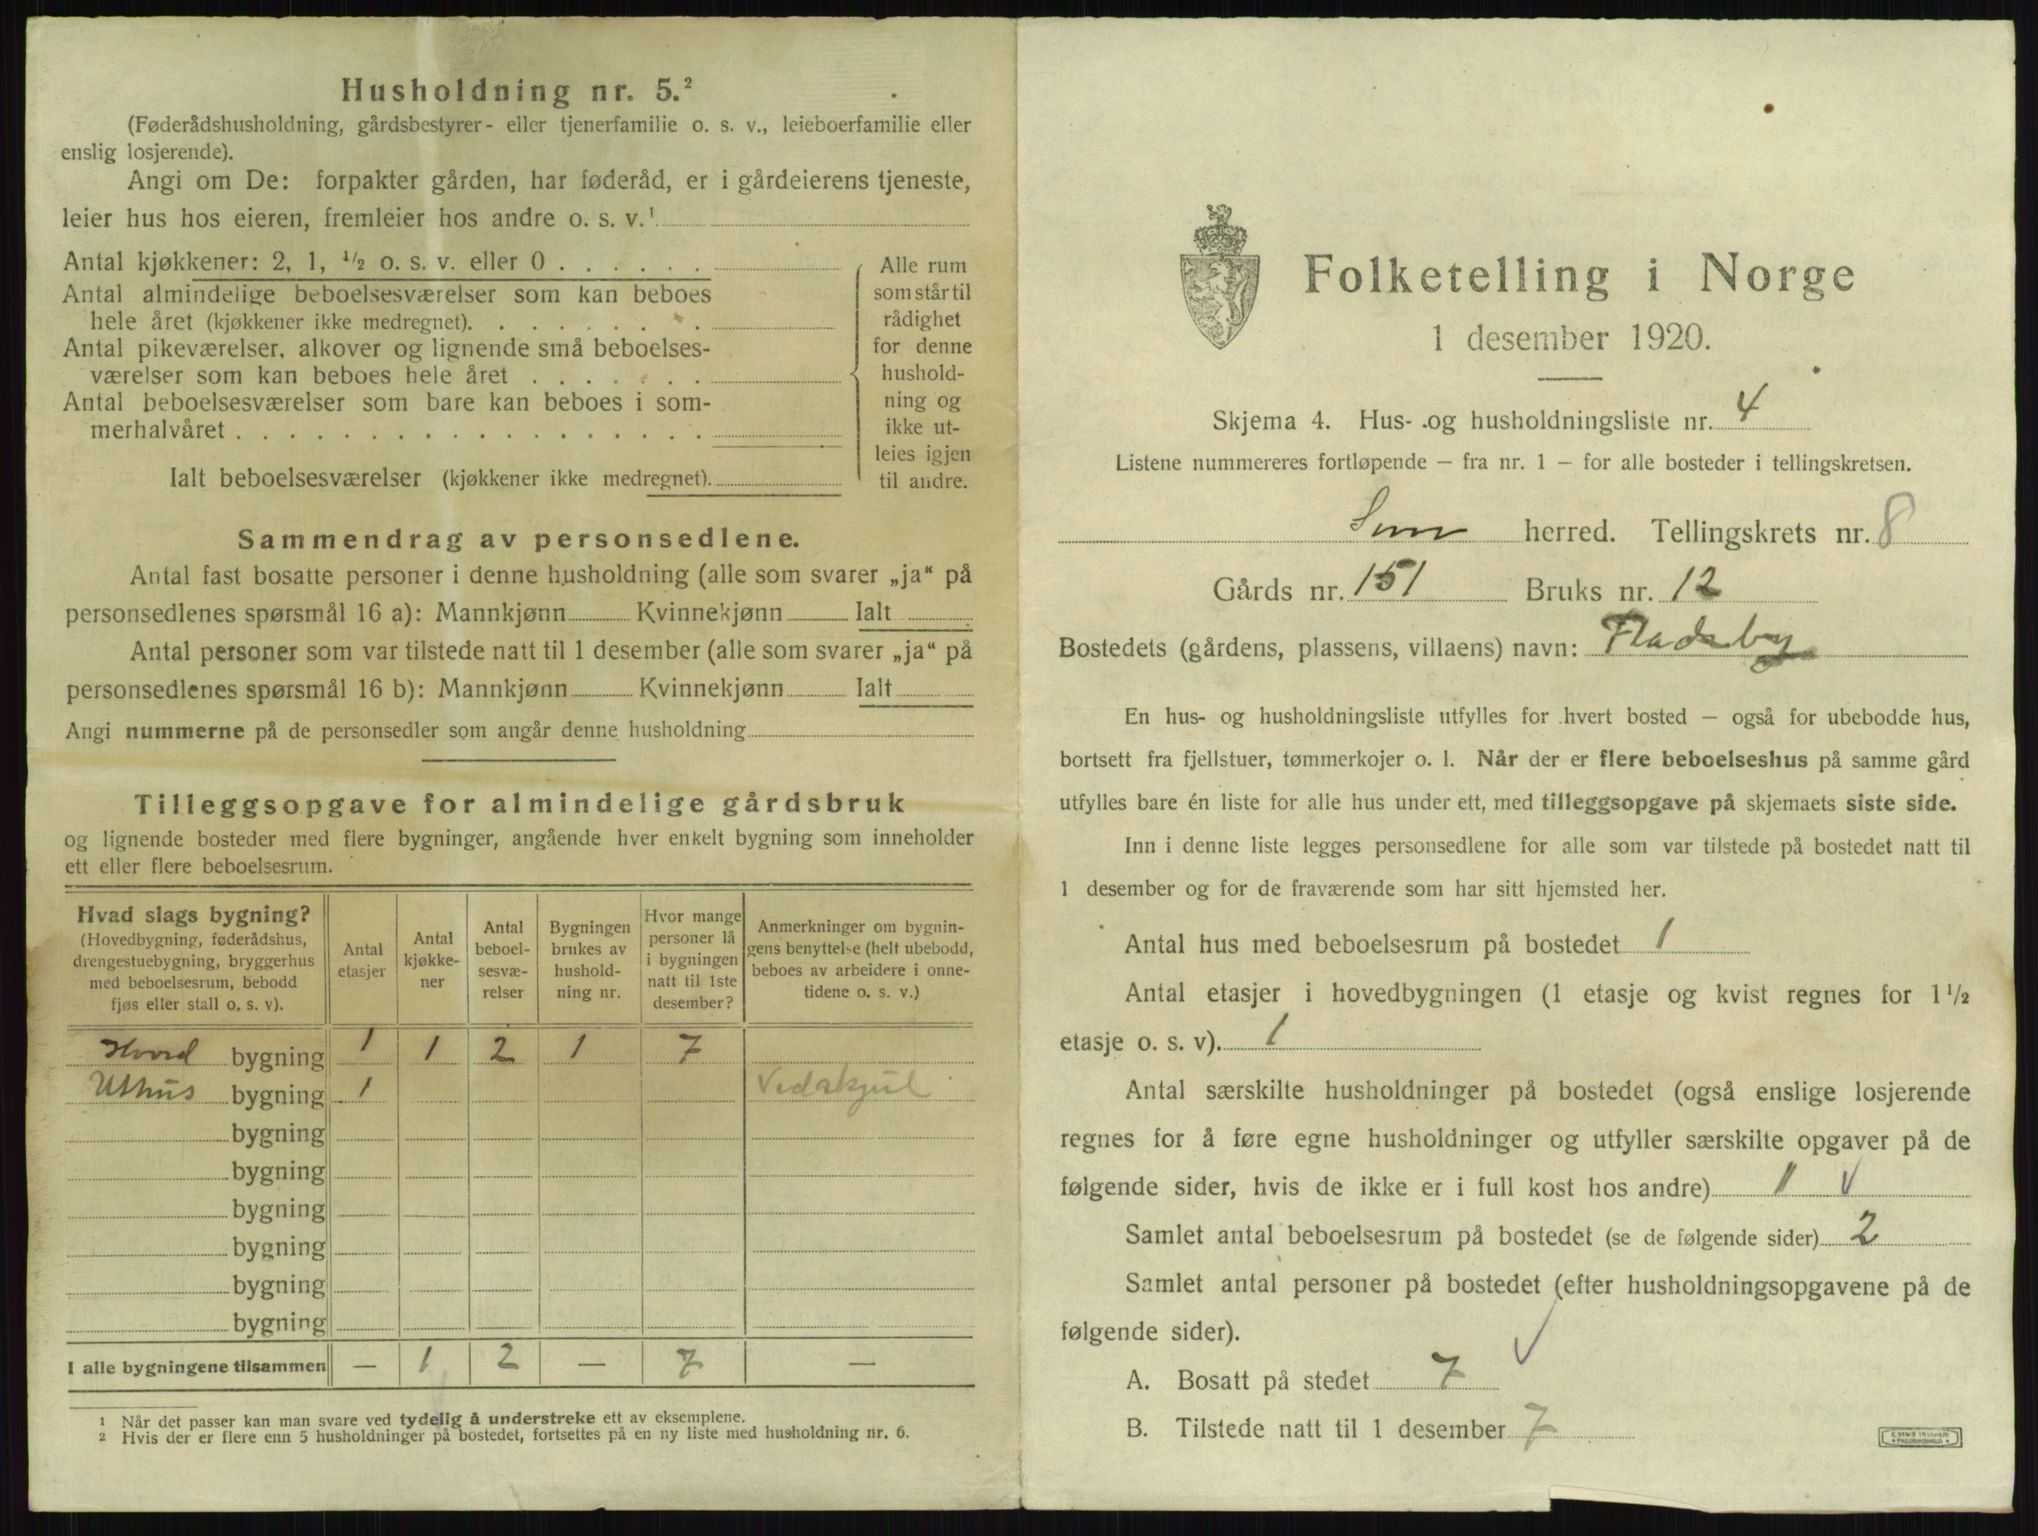 Husholdning nr. 5.²
(Føderådshusholdning, gårdsbestyrer- eller tjenerfamilie o. s. v., leieboerfamilie eller
enslig losjerende).
Angi om De: forpakter gården, har føderåd, er i gårdeierens tjeneste,
leier hus hos eieren, fremleier hos andre o. s. v.¹
Antal kjøkkener: 2, 1, ½ o. s. v. eller 0 . . . . . .
Antal almindelige beboelsesværelser som kan beboes
hele året (kjøkkener ikke medregnet). . . . . . . .
Antal pikeværelser, alkover og lignende små beboelses-
værelser som kan beboes hele året . . . . . . .
Antal beboelsesværelser som bare kan beboes i som-
merhalvåret . . . . . . . . . . . . . . . . . .
Ialt beboelsesværelser (kjøkkener ikke medregnet).
Alle rum
som står til
rådighet
for denne
hushold-
ning og
ikke ut-
leies igjen
til andre.
Sammendrag av personsedlene.
Antal fast bosatte personer i denne husholdning (alle som svarer „ja“ på
personsedlenes spørsmål 16 a): Mannkjønn Kvinnekjønn Ialt
Antal personer som var tilstede natt til 1 desember (alle som svarer „ja“ på
personsedlenes spørsmål 16 b): Mannkjønn Kvinnekjønn Ialt
Angi nummerne på de personsedler som angår denne husholdning
Tilleggsopgave for almindelige gårdsbruk
og lignende bosteder med flere bygninger, angående hver enkelt bygning som inneholder
ett eller flere beboelsesrum.
Hvad slags bygning?
(Hovedbygning, føderådshus,
drengestuebygning, bryggerhus
med beboelsesrum, bebodd
fjøs eller stall o. s. v).
Antal
etasjer
Antal
kjøkke-
ner
Antal
beboel-
sesvæ-
relser
Bygningen
brukes av
hushold-
ning nr.
Hvor mange
personer lå
i bygningen
natt til 1ste
desember?
Anmerkninger om bygnin-
gens benyttelse (helt ubebodd,
beboes av arbeidere i onne-
tidene o. s. v.)
Hoved bygning 1 1 2 1 7
Uthus bygning 1 Vedskjul
bygning
bygning
bygning
bygning
bygning
bygning
I alle bygningene tilsammen — 1 2 — 7 —
1 Når det passer kan man svare ved tydelig å understreke ett av eksemplene.
2 Hvis der er flere enn 5 husholdninger på bostedet, fortsettes på en ny liste med husholdning nr. 6.
Folketelling i Norge
1 desember 1920.
Skjema 4. Hus- og husholdningsliste nr. 4
Listene nummereres fortløpende — fra nr. 1 — for alle bosteder i tellingskretsen.
herred. Tellingskrets nr. 8
Gårds nr. 151 Bruks nr. 12
Bostedets (gårdens, plassens, villaens) navn: Fladsby
En hus- og husholdningsliste utfylles for hvert bosted — også for ubebodde hus,
bortsett fra fjellstuer, tømmerkojer o. l. Når der er flere beboelseshus på samme gård
utfylles bare én liste for alle hus under ett, med tilleggsopgave på skjemaets siste side.
Inn i denne liste legges personsedlene for alle som var tilstede på bostedet natt til
1 desember og for de fraværende som har sitt hjemsted her.
Antal hus med beboelsesrum på bostedet 1
Antal etasjer i hovedbygningen (1 etasje og kvist regnes for 1½
etasje o. s. v). 1
Antal særskilte husholdninger på bostedet (også enslige losjerende
regnes for å føre egne husholdninger og utfyller særskilte opgaver på de
følgende sider, hvis de ikke er i full kost hos andre) 1 √
Samlet antal beboelsesrum på bostedet (se de følgende sider) 2
Samlet antal personer på bostedet (efter husholdningsopgavene på de
følgende sider). √
A. Bosatt på stedet 7
B. Tilstede natt til 1 desember 7